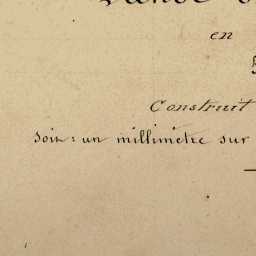 en
Construit
soit: un millimètre sur